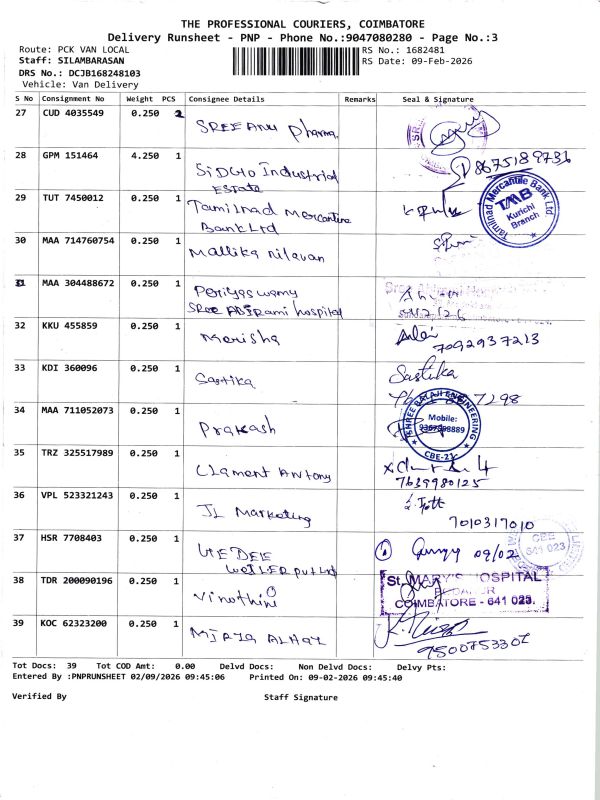 THE PROFESSIONAL COURIERS, COIMBATORE
Delivery Runsheet - PNP - Phone No.:9047080280 - Page No.:3
Route: PCK VAN LOCAL
RS No.: 1682481
Staff: SILAMBARASAN
RS Date: 09-Feb-2026
DRS No.: DCJB168248103
Vehicle: Van Delivery
S No Consignment No Weight PCS Consignee Details Remarks Seal & Signature
27 CUD 4035549 0.250 2 SREE ANU Pharma
28 GPM 151464 4.250 1 SIDCIO Industrial Estate 8675189736
29 TUT 7450012 0.250 1 Tamilnad Mercantine Bank Ltd
Tamilnad Mercantile Bank Ltd
TMB
Kurichi
Branch
30 MAA 714760754 0.250 1 Mallika nilavan
31 MAA 304488672 0.250 1 Periyaswamy
SREE ABIRami hospital
32 KKU 455859 0.250 1 Merisha
7092937213
33 KDI 360096 0.250 1 Sastika Sastika
34 MAA 711052073 0.250 1 Prakash
SHREE BALAJI ENGINEERING
Mobile:
CBE-21
35 TRZ 325517989 0.250 1 Clament Antony
7639980125
36 VPL 523321243 0.250 1 JL Marketing
7010317010
37 HSR 7708403 0.250 1 VEDEE
WEILER Pvt Ltd
09/02
CBE
641 023
38 TDR 200090196 0.250 1 Vinothini
St. MARY'S HOSPITAL
PODANUR
COIMBATORE - 641 023.
39 KOC 62323200 0.250 1
9500753302
Tot Docs: 39 Tot COD Amt: 0.00 Delvd Docs: Non Delvd Docs: Delvy Pts:
Entered By :PNPRUNSHEET 02/09/2026 09:45:06 Printed On: 09-02-2026 09:45:40
Verified By Staff Signature